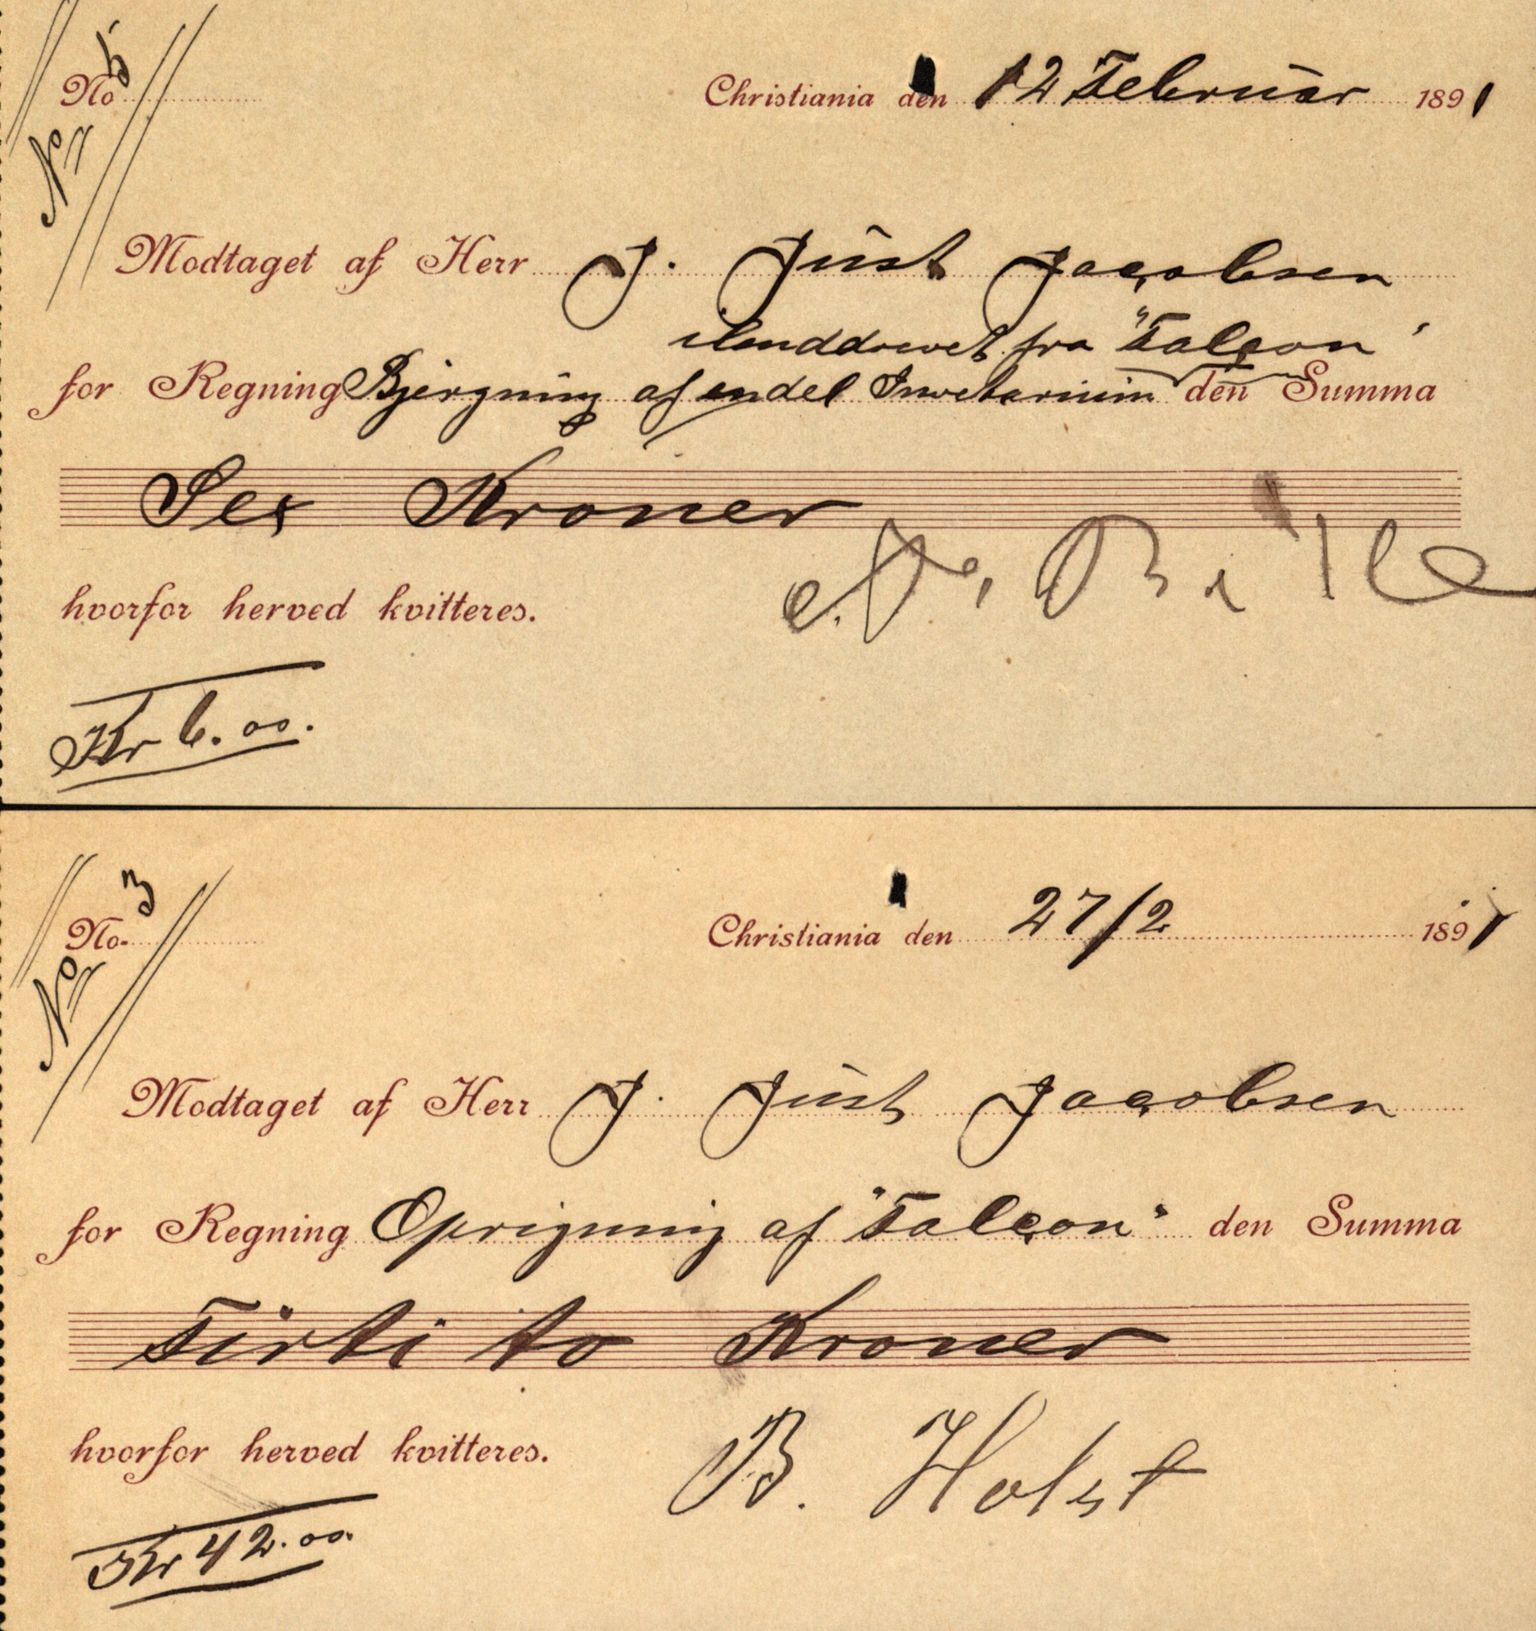 No 5
No 7
Christiania den 12 Februar 1891
Modtaget af Herr J. Just Jacobsen
ilanddrevet fra "Falcon"
for Regning Bjergning af endel Invetarium den Summa
Sex Kroner
hvorfor herved kvitteres.
Kr 6.00.
No. 3
No 7
Christiania den 27/2 1891
Modtaget af Herr J. Just Jacobsen
for Regning Oprigning af "Falcon" den Summa
Firti to Kroner
hvorfor herved kvitteres.
B. Holst
Kr 42.00.